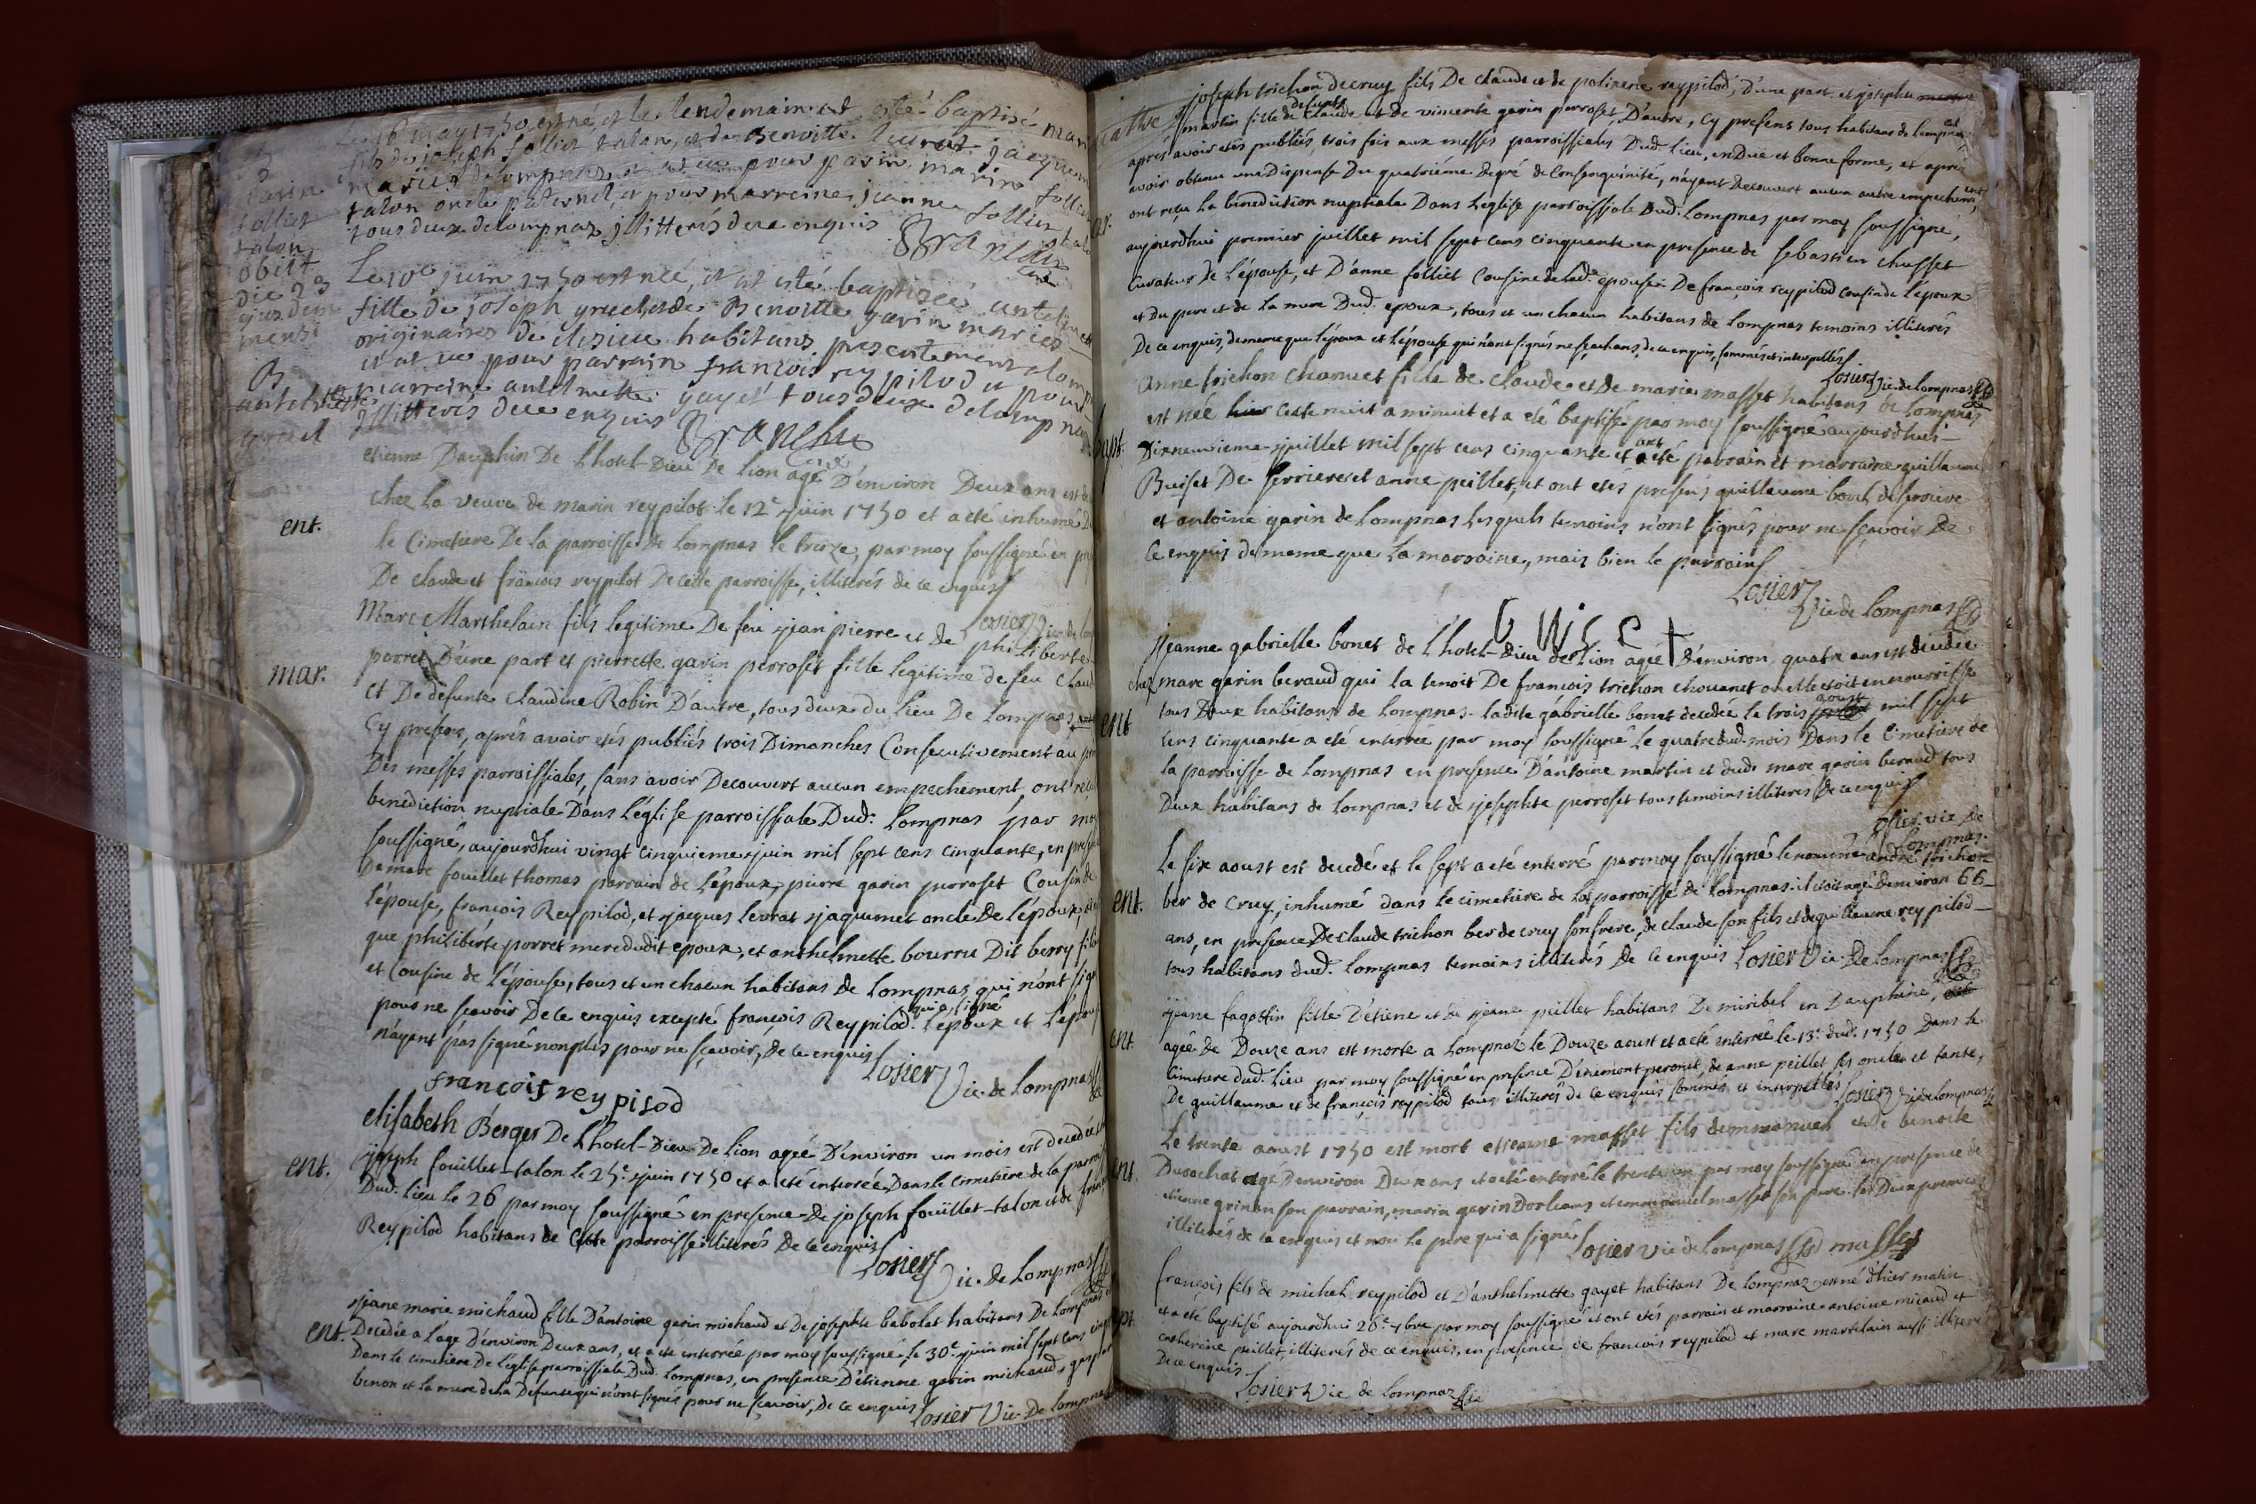 Le 16 may 1750 est né, et le lendemain a esté baptisé marin
fils de joseph follier talon, et de Benoitte Levrat jacquem
mariés de lompnas et a eu pour parrin marin follier
talon oncle paternel, et pour marreine jeanne follier talon
tous deux de lompnas illitterés de ce enquis
Branche
curé
B
marin
follier
talon
obiit
die 23
ejusdem
mensi
Le 10e juin 1750 est née, et at esté baptizée antelmette
fille de joseph gruel et de Benoitte garin mariés
originaires de disieu habitans presentement a lomp
et at eu pour parrain françois reypilod et pour
marreine antelmette gayet tous deux de lompnas
illitterés de ce enquis
Branche
curé
B
antelmette
gruel
etienne Dauphin De L'hotel-Dieu De Lion agé D'environ Deux ans est
chez La veuve de marin reypilot le 12e juin 1750 et a eté inhumé D
le Cimetiere De la parroisse de Lompnas le treize, par moy soussigné en pre
De claude et françois reypilot De cette parroisse, illiterés de ce enquis
Losier Vic. de Lom
ent.
Marc Marthelain fils legitime De feu jean pierre et de philiberte
porret D'une part et pierrette garin perroset fille legitime de feu Claude
et De defunte Claudine Robin D'autre, tous deux du Lieu De Lompnas
Cy presens, après avoir etés publiés trois Dimanches Consecutivement au pro
Des messes parroissiales, sans avoir Decouvert aucun empechement, ont reçu
benediction nuptiale Dans L'église parroissiale Dud: Lompnas par moy
soussigné, aujourdhui vingt cinquieme juin mil sept cens cinquante, en prese
De marc fouillet thomas parrain de L'époux, pierre garin perroset Cousin de
L'épouse, françois Reypilod, et jacques levrat jaquemet oncle De L'épouse
que philiberte porret mere dudit epoux, et anthelmette bourru Dit berry
et Cousine de L'épouse, tous et un chacun habitans de Lompnas qui n'ont sign
pour ne sçavoir De ce enquis excepté françois Reypilod qui a signé L'époux et L'épouse
n'ayent pas signé nonplus pour ne sçavoir, de ce enquis
Losier Vic. de Lompnas
françois reypilod
mar.
elisabeth Berger De L'hotel-Dieu De Lion agée D'environ un mois est decedée
joseph fouillet-talon le 25e juin 1750 et a eté enterrée Dans le Cimetiere de la parroi
Dud. Lieu le 26 par moy soussigné en presence de joseph fouillet-talon et de fran
Reypilod habitans de Cette parroisse illiterés De ce enquis
Losier Vic. de Lompnas
ent.
jeane marie michaud fille D'antoine garin michaud et De josephte babolat habitans De Lompnas
Decedée a L'age D'environ Deux ans, et a eté enterrée par moy soussigné le 30e juin mil sept Cens cinq
Dans le cimetiere De L'église parroissiale Dud. Lompnas, en presence D'étienne garin michaud, gaspar
binon et la mere de la Defunte qui n'ont signés pour ne sçavoir, de ce enquis
Losier Vic. De Lompnas
ent.
joseph trichon de cruy fils De claude et de polixene reypilod, D'une part et josephte
martin fille de defunt Claude et de vincente garin perroset, D'autre, Cy presens tous habitans de Lompnas
après avoir etés publiés, trois fois aux messes parroissiales Dud. Lieu, en Due et bonne forme, et après
avoir obtenu une Dispense Du quatriéme degré de Consanguinité, n'ayant Decouvert aucun autre empechement,
ont reçu La benediction nuptiale Dans L'eglise parroissiale Dud: Lompnas par moy soussigné,
aujourdhui premier juillet mil sept cens cinquante en presence de sebastien chusset
Curateur de L'épouse, et D'anne folliet Cousine de Lade epouse De françois reypilod Cousin de L'époux
et Du pere et de La mere Dud. epoux, tous et un chacun habitans de Lompnas temoins illiterés
De ce enquis, de meme que L'époux et L'épouse qui n'ont signés ne sçachans, de ce enquis, sommés et interpellés
Losier Vic. de Lompnas
mar.
anne trichon chouvet fille de claude et de marie masset habitans de Lompnas
est née cette nuit a minuit et a eté baptisée par moy soussigné aujourdhui
Dixneuvieme juillet mil sept cens cinquante et ont eté parrain et marraine guillaume
Buiset De serrieres et anne peillet, et ont etés presens guillaume bouch de serrieres
et antoine garin de Lompnas Lesquels temoins n'ont signés, pour ne sçavoir De
Ce enquis de meme que La marraine, mais bien le parrain
Losier
Vic de Lompnas
bapt.
jeanne gabrielle bonet de L'hotel-Dieu de Lion agée D'environ quatre ans est decedée
chez marc garin beraud qui la tenoit De françois trichon chouanet ou elle etoit en nourrisse
tous Deux habitans de Lompnas. ladite gabrielle bonet decedée le trois aoust mil sept
cens cinquante a eté enterrée par moy soussigné le quatre dud. mois Dans le Cimetiere de
la parroisse de Lompnas en presence D'antoine martin et dud. marc garin beraud tous
Deux habitans de Lompnas et de josephte perroset tous temoins illiteres De ce enquis
Losier vic. De
Lompnas.
ent
Le six aoust est decedé et le sept a eté enterré par moy soussigné le nommé andré trichon
ber de Cruy, inhumé dans le cimetiere de la parroisse de Lompnas: il etoit agé d'environ 66
ans, en presence De Claude trichon ber de cruy son frere, de claude son fils et de guillaume reypilod
tous habitans dud. Lompnas temoins illiterés De ce enquis Losier Vic. De Lompnas
ent.
jeane fagottin fille D'étiene et de jeane peillet habitans De miribel en Dauphiné,
agée de Douze ans est morte a Lompnas le Douze aoust et a eté enterrée le 13e. dud. 1750 Dans le
Cimetiere dud. Lieu par moy soussigné en presence D'enemont peronet, de anne peillet ses oncle et tante,
De guillaume et de françois reypilod tous illiterés de ce enquis sommés et interpellés Losier Vic. de Lompnas
ent.
Le trente aoust 1750 est mort etienne masset fils d'emmanuel et De benoite
Durochat agé d'environ Deux ans et a eté enterré le trente un par moy soussigné en presence de
etienne grinon son parrain, marin garin Dorleans et emmanuel masset son pere. les Deux premiers
illiterés de ce enquis et non le pere qui a signé
Losier vic de Lompnas masset
ent.
françois fils de michel reypilod et D'anthelmette gayet habitans De Lompnaz est né d'hier matin
et a eté baptisé aujourdhui 26e 7bre par moy soussigné et ont etés parrain et marraine antoine micaud et
catherine peillet, illiterés de ce enquis, en presence de francois reypilod et marc martelain aussi illiterés
De ce enquis
Losier Vic de Lompnaz
bapt.